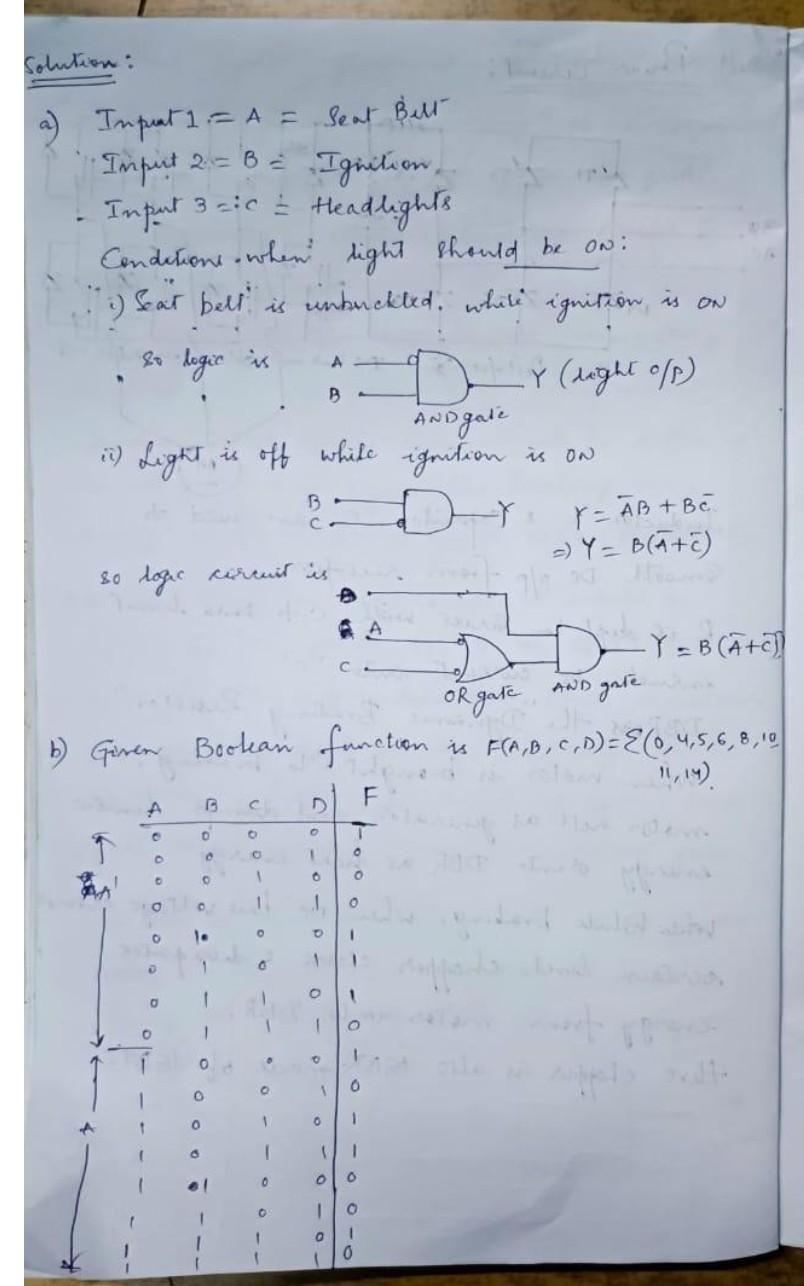 Solution:
a) Input 1 = A = Seat Belt
Input 2 = B = Ignition
Input 3 = C = Headlights
Conditions when light should be ON:
i) Seat belt is unbuckled while ignition is ON
So logic is
A
B
Y (light o/p)
AND gate
ii) Light is off while ignition is ON
B
C
Y
Y = A̅B + BC̅
=) Y = B(A̅+C̅)
so logic circuit is
B
A
C
OR gate
AND gate
Y = B(A̅+C̅)
b) Given Boolean function is F(A,B,C,D)=Σ(0,4,5,6,8,10
11,14)
A B C D F
0 0 0 0 1
0 0 0 1 0
0 0 1 0 0
0 0 1 1 0
0 1 0 0 1
0 1 0 1 1
0 1 1 0 1
0 1 1 1 0
1 0 0 0 1
1 0 0 1 0
1 0 1 0 1
1 0 1 1 1
1 1 0 0 0
1 1 0 1 0
1 1 1 0 1
1 1 1 1 0
A'
A